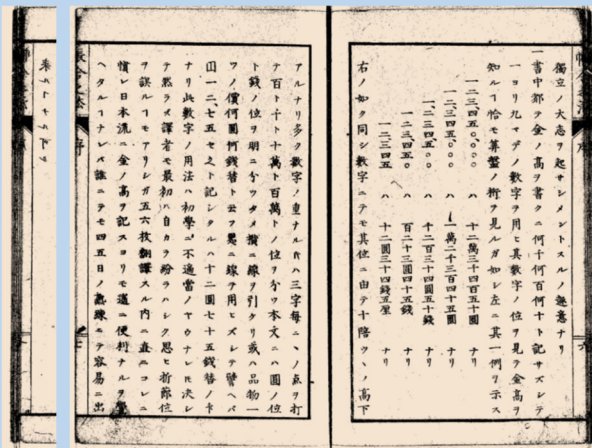 獨立ノ大志ヲ起サシメントスルノ趣意ナリ
一書中都テ金ノ高ヲ書クニ何千何百何十ト記サズシテ
一ヨリ九マデノ數字ヲ用ヒ其數字ノ位ヲ見テ金高ヲ
知ルヿ恰モ算盤ノ術ヲ見ルガ如シ左ニ其一例ヲ示ス
一二三、四五〇、〇〇〇 ハ 十二萬三千四百五十圓 ナリ
一二、三四五、〇〇 ハ 一萬二千三百四十五圓 ナリ
一、二三四、五〇 ハ 千二百三十四圓五十錢 ナリ
一二三、四五〇 ハ 百二十三圓四十五錢 ナリ
一二、三四五 ハ 十二圓三十四錢五厘 ナリ
右ノ如ク同シ數字ニテモ其位ニ由テ十陪ツヽノ高下
アルナリ多ク數字ノ重ナル片ハ三字每ニヽノ点ヲ打
テ百ト千ト十萬ト百萬トノ位ヲ分ツ本文ニハ圓ノ位
ト錢ノ位ヲ明ニ分ツタメ横ニ線ヲ引タリ或ハ品物一
ツノ價何圓何錢替ト云フ處ニ線ヲ用ヒズシテ譬ヘバ
囗一二、七五セ々ト記シタルハ十二圓七十五錢替ノ
ナリ此數字ノ用法ハ初學ニ不適當ノヤウナレ𪜈決シ
テ然ラズ譯者モ最初ハ自カラ紛ラハシク思ヒ折節位
ヲ誤ルヿモアリシガ五六枚翻譯スル内ニ直ニコレニ
慣レ日本流ニ金ノ高ヲ記スヨリモ遙ニ便利ナルヲ覺
ヘタルヿナレバ誰ニテモ四五日ノ熟練ニテ容易ニ出